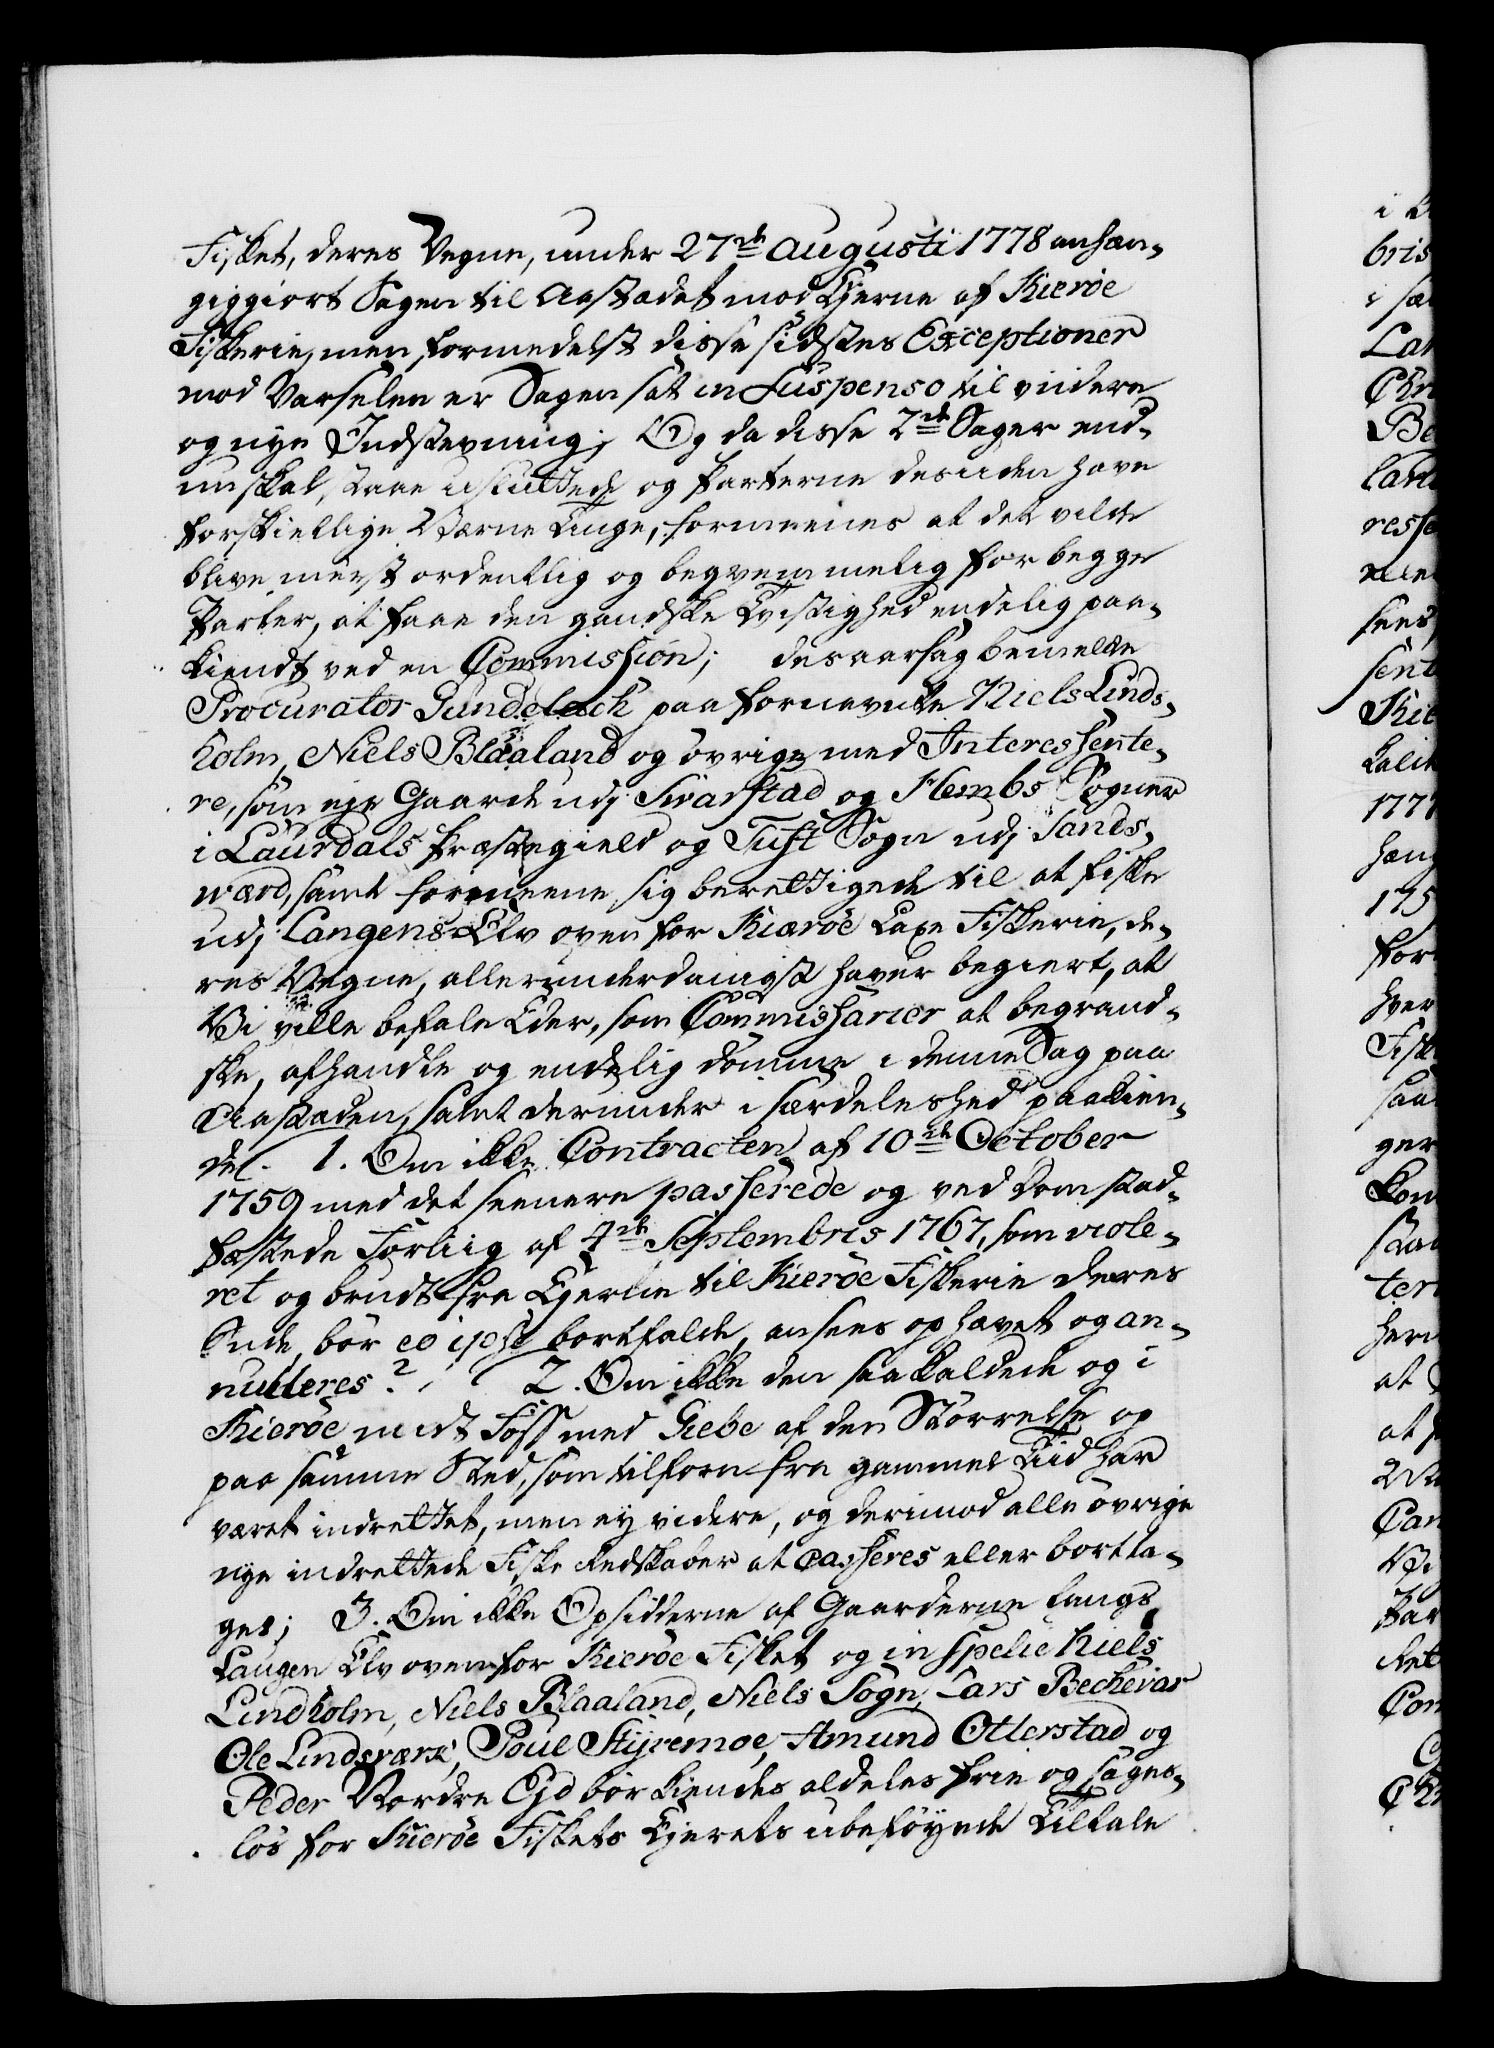 Fisket, deres Vegne, under 27de Augusti 1778 anhæn-
giggiort Sagen til Aastædet mod Ejerne af Kieröe
Fiskerie, men formedelst disse sidstes Exceptioner
mod Varselen er Sagen sat in Suspenso til viidere
og nye Indstevning; Og da disse 2de Sager end-
nu skal staae usluttede og Parterne desuden have
forskiellige Værne Tinge, formeenes at det vilde
blive meest ordentlig og beqvemmelig for begge
Parter, at faae den gandske Tvistighed endelig paa-
kiendt ved en Commission; desaarsag bemeldte
Procurator Gundelach paa fornevnte Niels Linds-
holm, Niels Blaaland og övrige med Interessente-
re, som eje Gaarde udj Svarstad og Hembs Sogner
i Laurdals Præstegield og Tuft Sogn udj Sands-
værd, samt formeene sig berettigede til at fiske
udj Langens Elv oven for Kiæröe Laxe Fiskerie, de-
res Vegne, allerunderdanigst haver begiert, at
Vi ville befale Eder, som Commissarier at begrand-
ske, afhandle og endelig dömme i denne Sag paa
Aastæden, samt derunder i særdeleshed paakien-
de. 1. Om ikke Contracten af 10de October
1759 med det seenere passerede og ved Dom stad-
fæstede Forliig af 4de Septembris 1767, som viole-
ret og brudt fra Ejerne til Kieröe Fiskerie deres
Side, bör eo ipso bortfalde, ansees ophævet og an-
nulleres? 2. Om ikke den saakaldede og i
Kieröe midt Foss med Giebe af den Störrelse og
paa samme Sted, som tilforn fra gammel Tiid har
været indrettet, men ey videre, og derimod alle övrige
nye indrettede Fiske Redskaber at casseres eller bortta-
ges; 3. Om ikke Opsidderne af Gaarderne langs
Laugen Elv ovenfor Kieröe Fisket og in specie Niels
Lindholm, Niels Blaaland, Niels Sogn, Lars Bechevar
Ole Lindsværk, Poul Styremoe, Amund Otterstad og
Peder Nordre Ejd bör kiendes aldeles frie og sages-
lös for Kieröe Fiskets Ejerets ubeföyede Tiltale